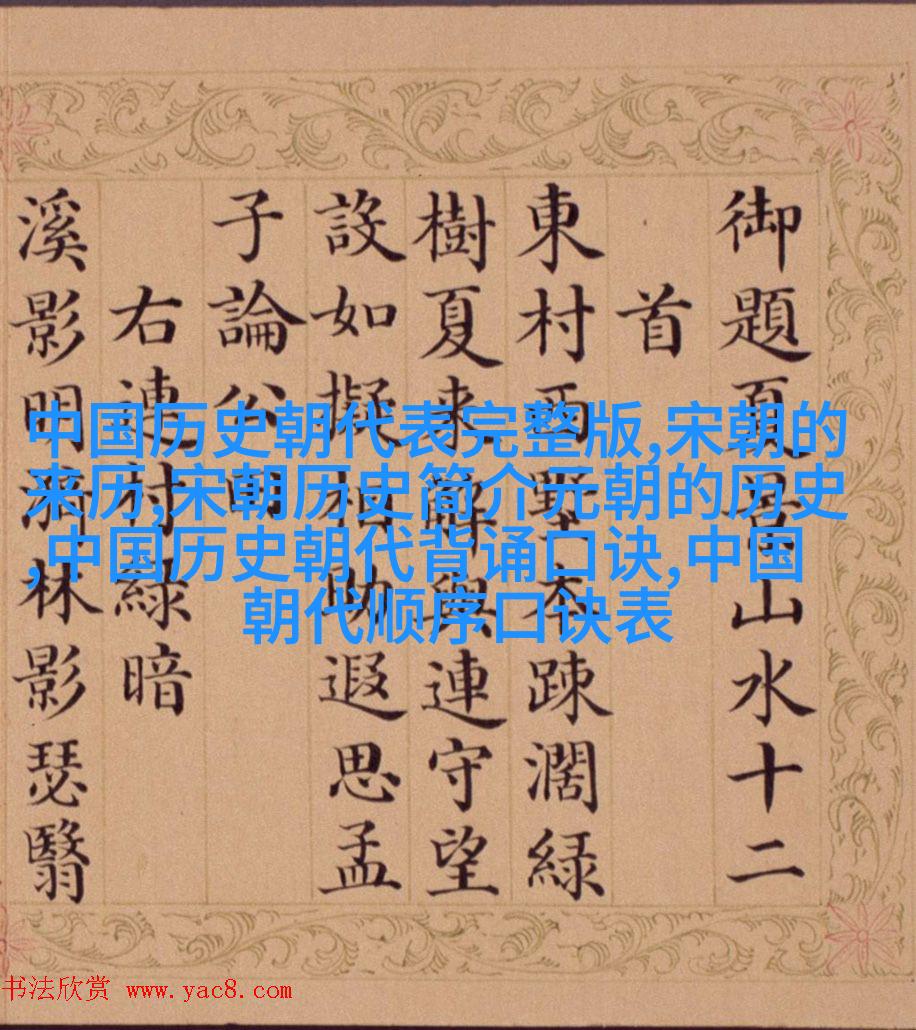 御題夏山水十二
首
東村雨墅本疎濶緑
樹夏来解與連守望
設如擬相助遐思孟
子論公田
右連村緑暗
溪影明林影瑟翳
中国历史朝代表完整版,宋朝的
来历,宋朝历史简介元朝的历史
,中国历史朝代背诵口诀,中国
朝代顺序口诀表
书法欣赏 www.yac8.com